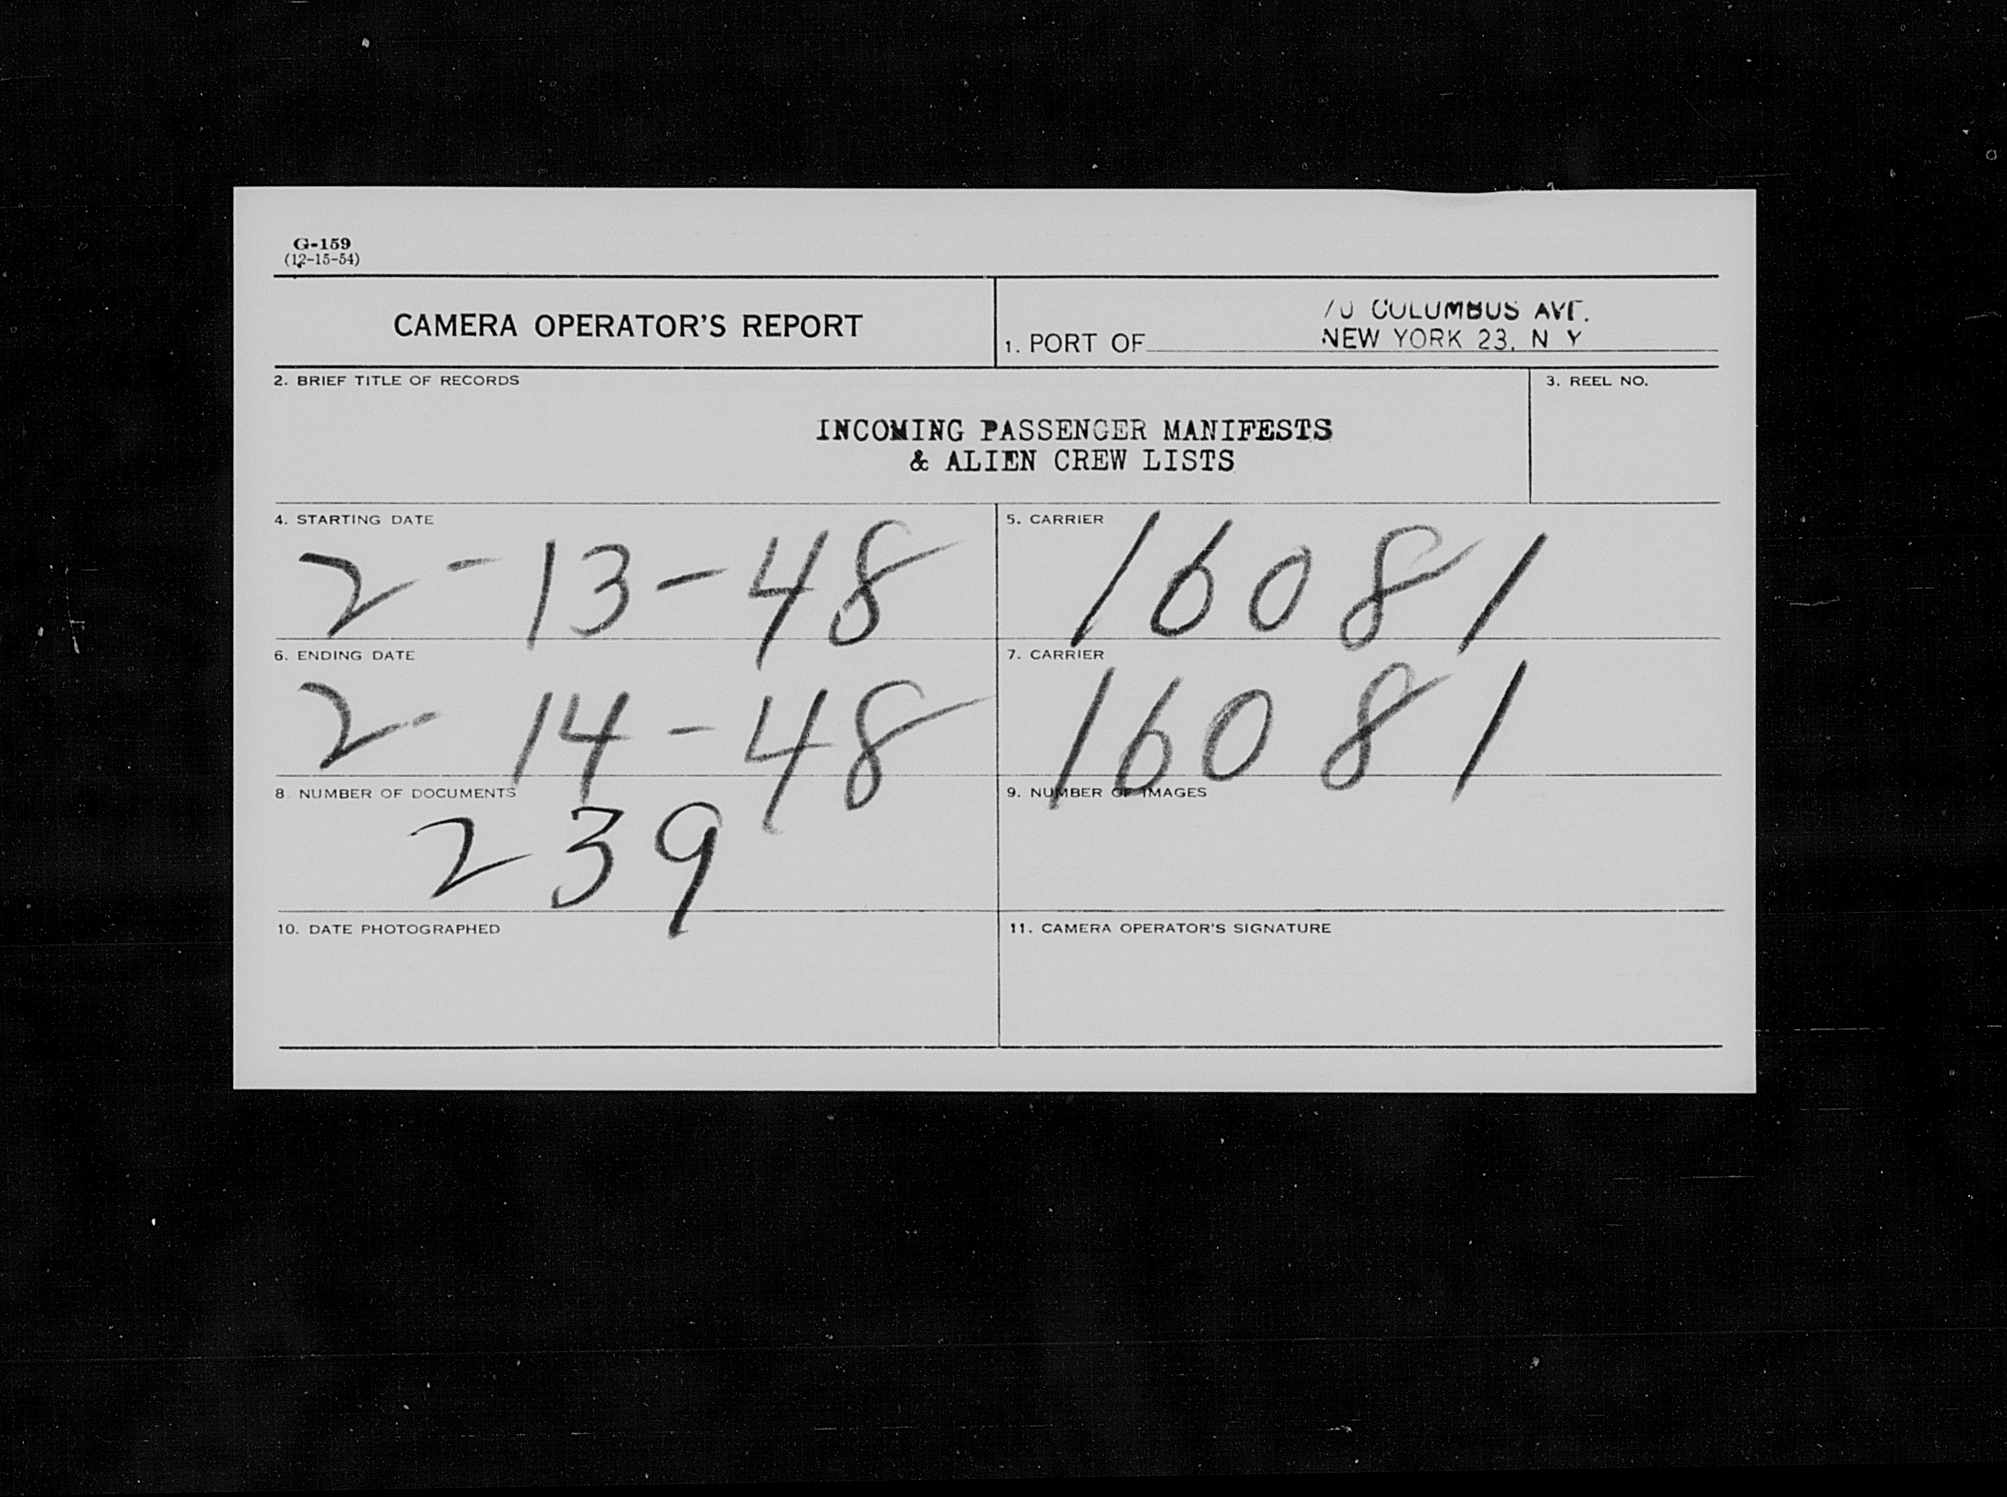 G-159
(12-15-54)
CAMERA OPERATOR'S REPORT
70 COLUMBUS AVE.
1. PORT OF NEW YORK 23, N Y
2. BRIEF TITLE OF RECORDS
3. REEL NO.
INCOMING PASSENGER MANIFESTS
& ALIEN CREW LISTS
4. STARTING DATE
2-13-48
5. CARRIER
16081
6. ENDING DATE
2-14-48
7. CARRIER
16081
8. NUMBER OF DOCUMENTS
239
9. NUMBER OF IMAGES
10. DATE PHOTOGRAPHED
11. CAMERA OPERATOR'S SIGNATURE